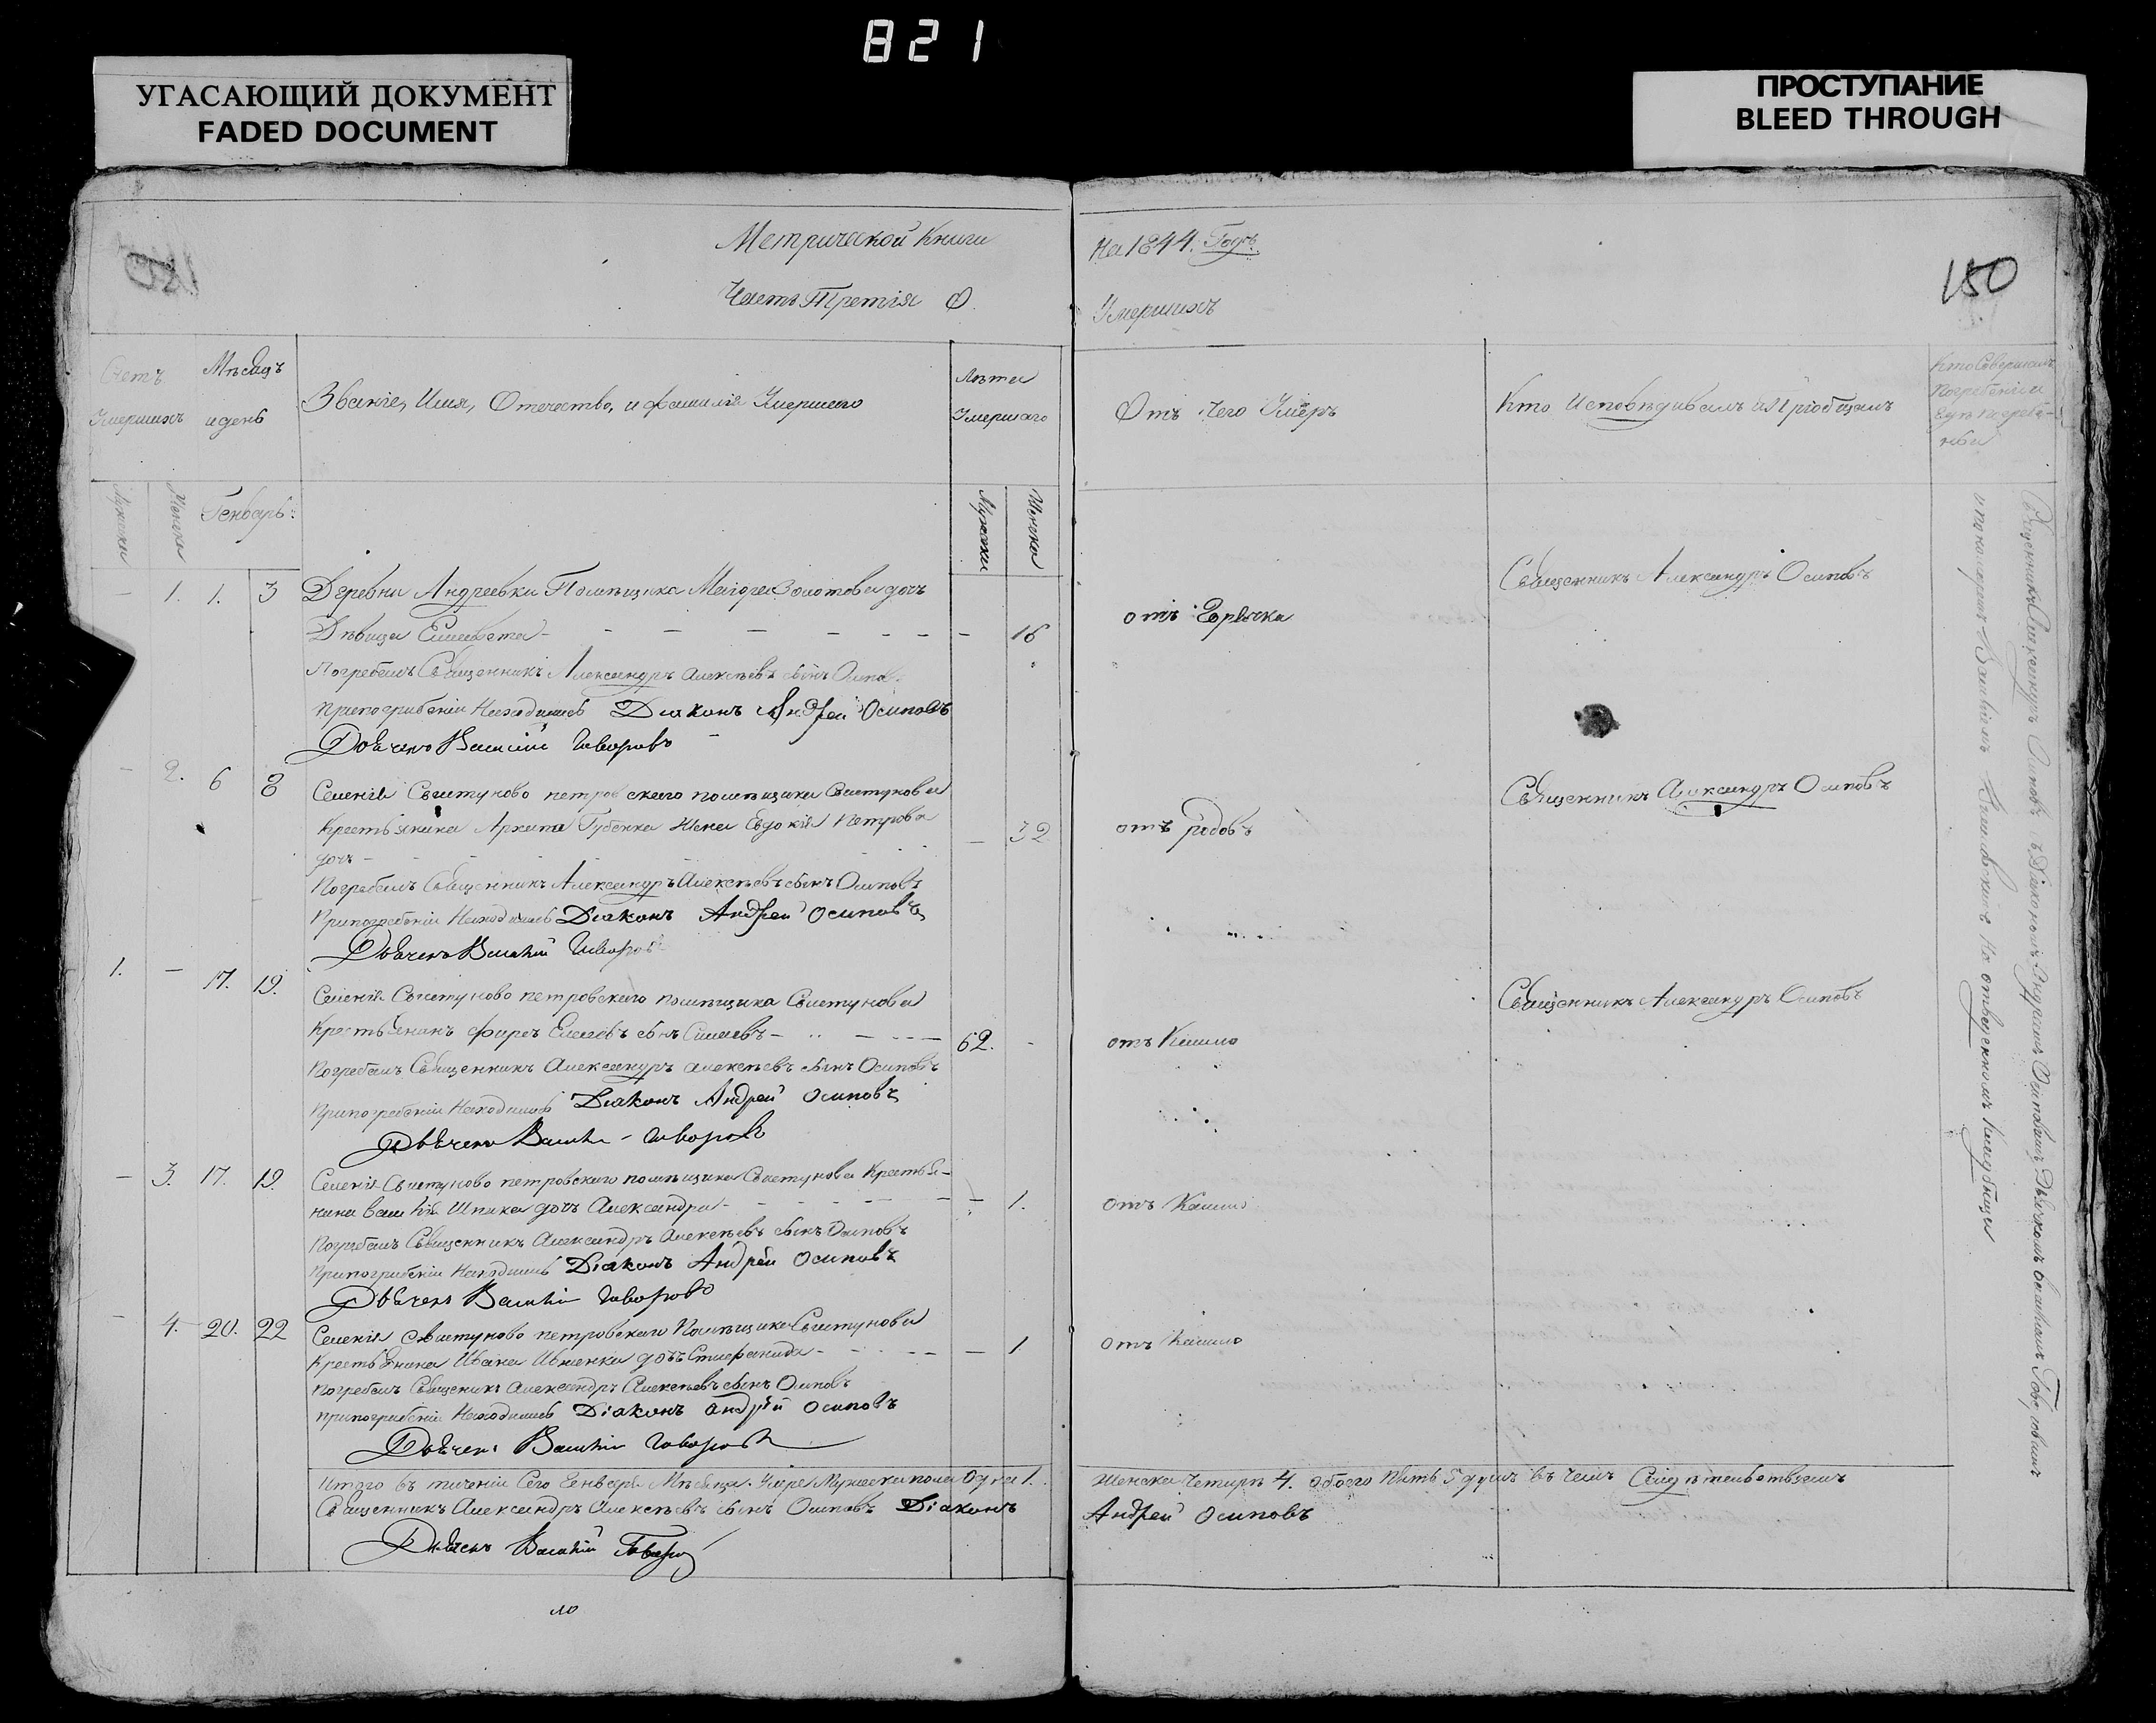 821
УГАСАЮЩИЙ ДОКУМЕНТ
FADED DOCUMENT
ПРОСТУПАНИЕ
BLEED THROUGH
Метрической Книги
На 1844. Годъ.
150
Часть Третія О
Умершихъ
Счетъ Умершихъ
Мѣсяцъ и день
Званіе, Имя, Отечество, и фамилія Умершего
Лѣта Умершаго
Отъ Чего Умеръ
Кто Исповѣдывалъ и Пріобщалъ
Кто Совершалъ Погребеніе и
Мужска
Женска
Генварь
Мужски
Женска
Священникъ Александръ Осиповъ
– 1. 1. 3 Деревни Андреевки Помѣщика Маіора Золотова дочь
Дѣвица Елисавета – – – – – – – – 16
отъ Горячка
Погребалъ Священникъ Александръ Алексѣевъ сынъ Осипов.
при погрибеніи Находились Діаконъ Андрей Осиповъ
Дьячекъ Василій Говоровъ
– 2. 6 8 Селенія Свистуново петровскаго помѣщика Свистунова
Священникъ Александръ Осиповъ
Крестьянина Архипа Губенка Жена Евдокія Петрова – 32
отъ родовъ
дочь –
Погребалъ Священникъ Александръ Алексѣевъ сынъ Осиповъ
При погребеніи Находились Діаконъ Андрей Осиповъ
Дьячекъ Василій Говоров
1. – 17. 19. Селенія Свистуново петровскаго помѣщика Свистунова
Священникъ Александръ Осиповъ
Крестьянинъ сынъ – 62. -
отъ Кашлю
Погребалъ Священникъ Александръ Алексѣевъ сынъ Осиповъ
При погребеніи Находились Діаконъ Андрей Осиповъ
Дьячекъ Василій Говоровъ
– 3. 17. 19. Селенія Свистуново петровскаго помѣщика Свистунова Крестья-
нина Василія Шпака дочь Александра – – 1.
отъ Кашлю
Погребалъ Священникъ Александръ Алексѣевъ сынъ Осиповъ
При погрибеніи Находились Діаконъ Андрей Осиповъ
Дьячекъ Василій Говоровъ
– 4. 20. 22 Селенія Свистуново петровскаго Помѣщика Свистунова
Крестьянина Ивана дочь Стифанида – – 1
отъ Кашлю
Погребалъ Священикъ Александръ Алексѣевъ сынъ Осиповъ
при погрибеніи Находились Діаконъ Андрѣй Осиповъ
Дьячекъ Василій Говоровъ
Итого въ тичении Сего Генваря Мѣсяца. Умре Мужеска пола Одна 1.
Женска Четыри 4. обоего Пять 5 душъ въ Чемъ Свидѣтельствуемъ
Священникъ Александръ Алексѣевъ сынъ Осиповъ Діаконъ
Андрей Осиповъ
Дьячекъ Василій
Священникъ Александръ Осиповъ съ Діакономъ Андреемъ Осиповымъ Дьячкомъ Василіемъ Говоровымъ
на отведенномъ кладбище